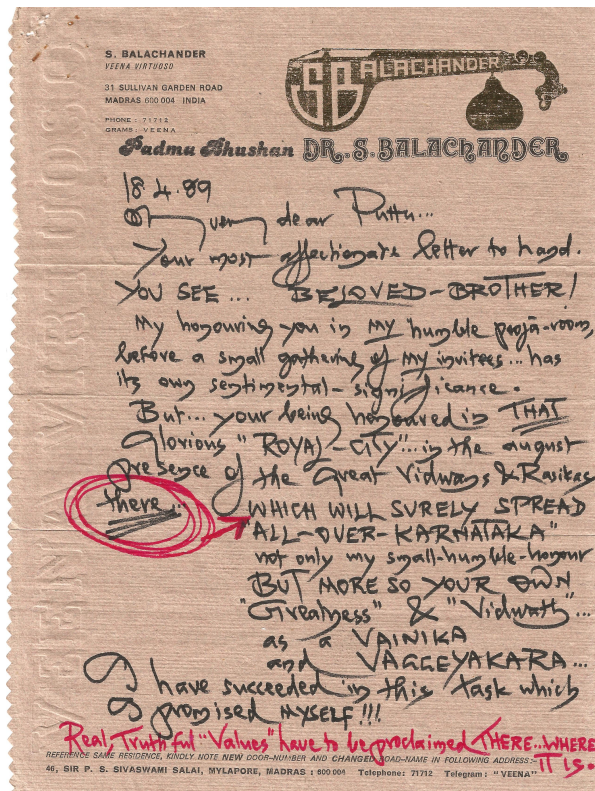 S. BALACHANDER
VEENA VIRTUOSO
31 SULLIVAN GARDEN ROAD
MADRAS 600 004 INDIA
PHONE : 71712
GRAMS : VEENA
SB BALACHANDER
Padma Bhushan DR. S. BALACHANDER
VEENA VIRTUOSO
18.4.89
My very dear Puttu...
Your most affectionate letter to hand.
YOU SEE... BELOVED-BROTHER!
My honouring you in my humble pooja-room,
before a small gathering of my invitees... has
its own sentimental-significance.
But... your being honoured in THAT
Glorious "ROYAL-CITY"... in the august
presence of the Great Vidwans & Rasikas
there.
WHICH WILL SURELY SPREAD
"ALL-OVER-KARNATAKA"
not only my small-humble-honour
BUT MORE SO YOUR OWN
"Greatness" & "Vidwath"...
as a VAINIKA
and VAGGEYAKARA...
I have succeeded in this task which
I promised MYSELF!!!
Real, Truthful "Values" have to be proclaimed THERE..WHERE
IT IS.
REFERENCE SAME RESIDENCE, KINDLY NOTE NEW DOOR-NUMBER AND CHANGED ROAD-NAME IN FOLLOWING ADDRESS:-
46, SIR P. S. SIVASWAMI SALAI, MYLAPORE, MADRAS : 600 004 Telephone: 71712 Telegram : "VEENA"